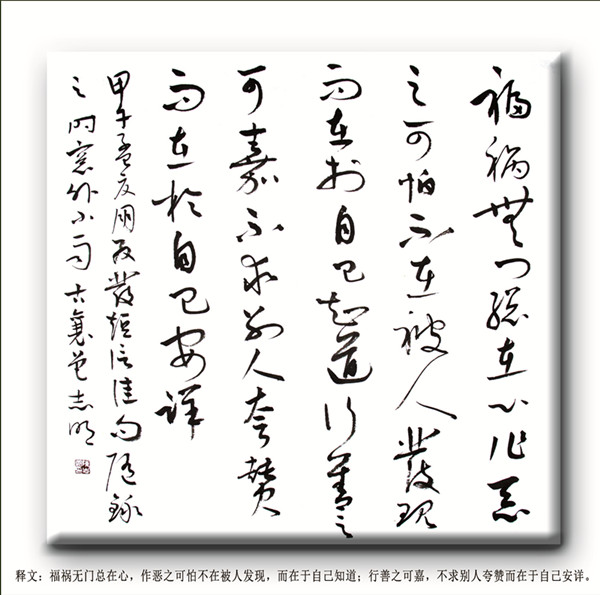 福禍無門總在心作惡
之可怕不在被人發現
而在於自己知道行善之
可嘉不求別人夸贊
而在於自己安詳
甲午孟夏用友發短信佳句隨錄
之时窗外小雨古襄志明
释文：福祸无门总在心，作恶之可怕不在被人发现，而在于自己知道；行善之可嘉，不求别人夸赞而在于自己安详。